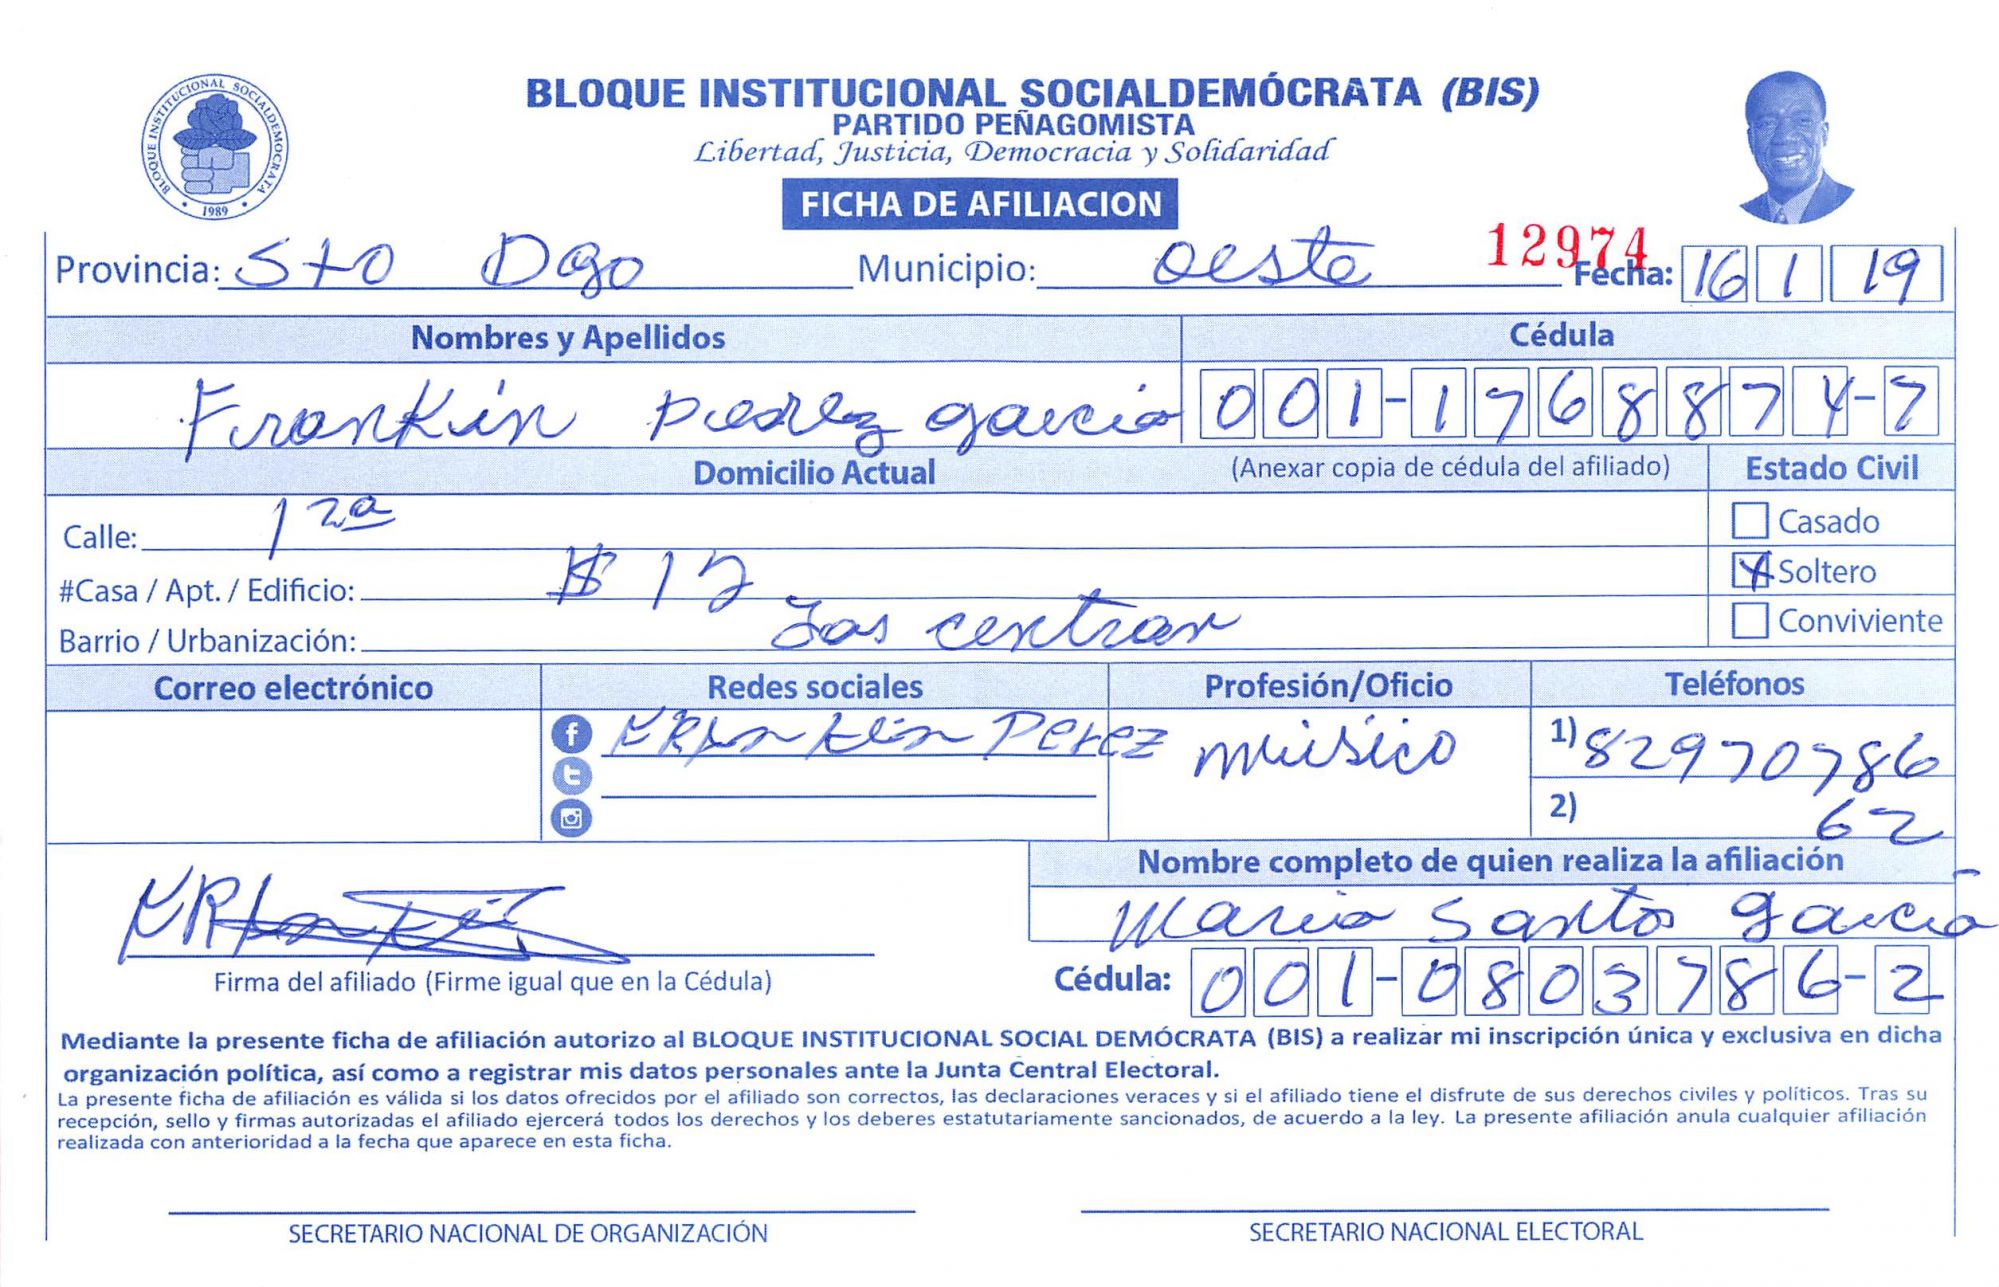 BLOQUE INSTITUCIONAL SOCIALDEMOCRATA
1989
BLOQUE INSTITUCIONAL SOCIALDEMÓCRATA (BIS)
PARTIDO PEÑAGOMISTA
Libertad, Justicia, Democracia y Solidaridad
FICHA DE AFILIACION
12974
Provincia: Sto Dgo Municipio: oeste Fecha: 16 1 19
Nombres y Apellidos Cédula
Frankin garcia 001-1768874-7
Domicilio Actual (Anexar copia de cédula del afiliado) Estado Civil
Calle: 12a Casado
#Casa / Apt. / Edificio: # 12 X Soltero
Barrio / Urbanización: Las Conviviente
Correo electrónico Redes sociales Profesión/Oficio Teléfonos
FRanklin Perez músico 1) 82970786
2) 62
Nombre completo de quien realiza la afiliación
Mario Santos Garcia
Firma del afiliado (Firme igual que en la Cédula) Cédula: 001-0803786-2
Mediante la presente ficha de afiliación autorizo al BLOQUE INSTITUCIONAL SOCIAL DEMÓCRATA (BIS) a realizar mi inscripción única y exclusiva en dicha
organización política, así como a registrar mis datos personales ante la Junta Central Electoral.
La presente ficha de afiliación es válida si los datos ofrecidos por el afiliado son correctos, las declaraciones veraces y si el afiliado tiene el disfrute de sus derechos civiles y políticos. Tras su
recepción, sello y firmas autorizadas el afiliado ejercerá todos los derechos y los deberes estatutariamente sancionados, de acuerdo a la ley. La presente afiliación anula cualquier afiliación
realizada con anterioridad a la fecha que aparece en esta ficha.
SECRETARIO NACIONAL DE ORGANIZACIÓN SECRETARIO NACIONAL ELECTORAL